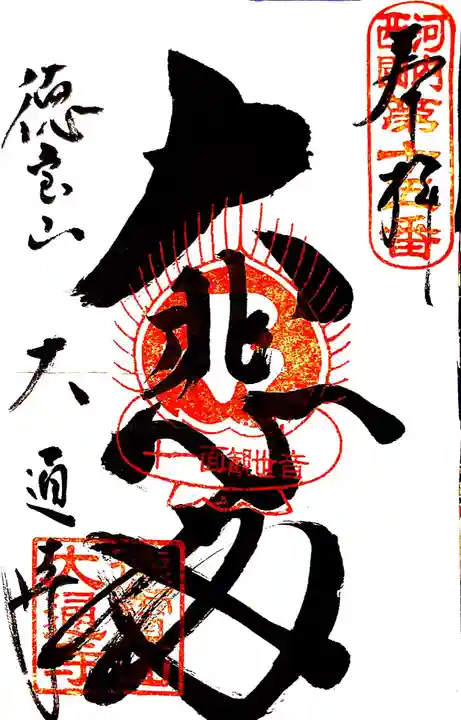 奉拝
河内
西国第十五番
大悲殿
十一面観世音
徳宝山
大通寺
徳寶山
大通寺